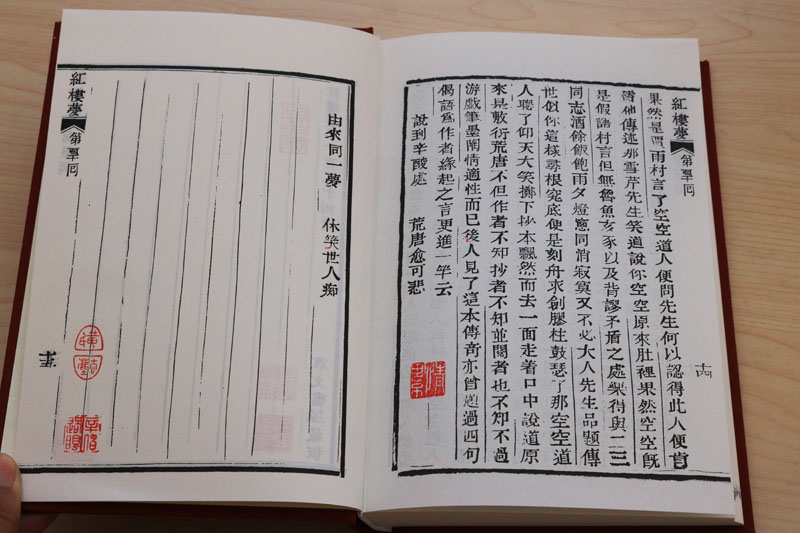 紅樓夢 第 回
果然是賈雨村言了空空道人便問先生何以認得此人便肯
替他傳述那雪芹先生笑道說你空空原來肚裡果然空空旣
是假語村言但無魯魚亥豕以及背謬矛盾之處樂得與二三
同志酒餘飯飽雨夕燈窓同消寂寞又不必大人先生品題傳
世似你這樣尋根究底便是刻舟求劍膠柱鼓瑟了那空空道
人聽了仰天大笑擲下抄本飄然而去一面走着口中說道原
來是敷衍荒唐不但作者不知抄者不知並閱者也不知不過
游戲筆墨陶情適性而已後人見了這本傳奇亦曾題過四句
偈語爲作者緣起之言更進一竿云
說到辛酸處　荒唐愈可悲
由來同一夢　休笑世人痴
紅樓夢 第 回